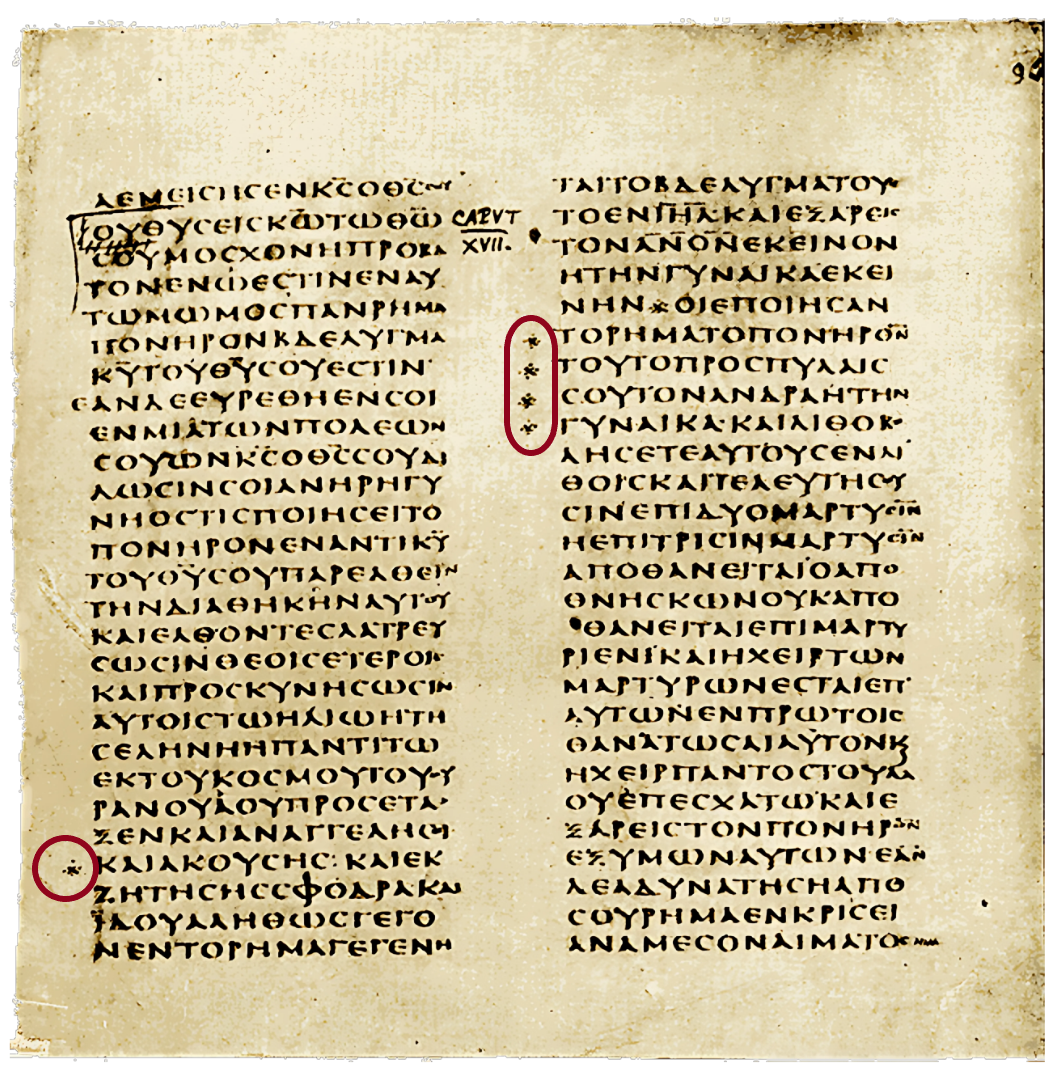 ΑΕΜΕΙCΗCΕΝΚ̅C̅ΟΘ̅C̅CΟΥ
ΟΥΘΥCΕΙCΚ̅Ω̅ΤΩΘ̅Ω̅
CΟΥΜΟCΧΟΝΗΠΡΟΒΑ
ΤΟΝΕΝΩΕCΤΙΝΕΝΑΥ
ΤΩΜΩΜΟCΠΑΝΡΗΜΑ
ΠΟΝΗΡΟΝΒΔΕΛΥΓΜΑ
Κ̅Υ̅ΤΟΥΘ̅Υ̅CΟΥΕCΤΙΝ
ΕΑΝΔΕΕΥΡΕΘΗΕΝCΟΙ
ΕΝΜΙΑΤΩΝΠΟΛΕΩΝ
CΟΥΩΝΚ̅C̅ΟΘ̅C̅CΟΥΔΙ
ΔΩCΙΝCΟΙΑΝΗΡΗΓΥ
ΝΗΟCΤΙCΠΟΙΗCΕΙΤΟ
ΠΟΝΗΡΟΝΕΝΑΝΤΙΚ̅Υ̅
ΤΟΥΘ̅Υ̅CΟΥΠΑΡΕΛΘΕΙΝ
ΤΗΝΔΙΑΘΗΚΗΝΑΥΤΟΥ
ΚΑΙΕΛΘΟΝΤΕCΛΑΤΡΕΥ
CΩCΙΝΘΕΟΙCΕΤΕΡΟΙC
ΚΑΙΠΡΟCΚΥΝΗCΩCΙΝ
ΑΥΤΟΙCΤΩΗΛΙΩΗΤΗ
CΕΛΗΝΗΗΠΑΝΤΙΤΩ
ΕΚΤΟΥΚΟCΜΟΥΤΟΥΟΥ
ΡΑΝΟΥΑΟΥΠΡΟCΕΤΑ
ΞΕΝΚΑΙΑΝΑΓΓΕΛΗCΟΙ
※ΚΑΙΑΚΟΥCΗC:ΚΑΙΕΚ
ΖΗΤΗCΗCCΦΟΔΡΑΚΑΙ
ΙΔΟΥΑΛΗΘΩCΓΕΓΟ
ΝΕΝΤΟΡΗΜΑΓΕΓΕΝΗ
CAPVT
XVII.
ΤΑΙΤΟΒΔΕΛΥΓΜΑΤΟΥ
ΤΟΕΝΙ̅Η̅Λ̅ΚΑΙΕΞΑΡΕΙC
ΤΟΝΑ̅Ν̅Ο̅Ν̅ΕΚΕΙΝΟΝ
ΗΤΗΝΓΥΝΑΙΚΑΕΚΕΙ
ΝΗΝ※ΟΙΕΠΟΙΗCΑΝ
※ΤΟΡΗΜΑΤΟΠΟΝΗΡΟΝ
※ΤΟΥΤΟΠΡΟCΠΥΛΑΙC
※CΟΥΤΟΝΑΝΔΡΑΗΤΗΝ
※ΓΥΝΑΙΚΑ·ΚΑΙΛΙΘΟΒΟ
ΛΗCΕΤΕΑΥΤΟΥCΕΝΛΙ
ΘΟΙCΚΑΙΤΕΛΕΥΤΗCΟΥ
CΙΝΕΠΙΔΥΟΜΑΡΤΥCΙΝ
ΗΕΠΙΤΡΙCΙΝΜΑΡΤΥCΙΝ
ΑΠΟΘΑΝΕΙΤΑΙΟΑΠΟ
ΘΝΗCΚΩΝΟΥΚΑΠΟ
ΘΑΝΕΙΤΑΙΕΠΙΜΑΡΤΥ
ΡΙΕΝΙΚΑΙΗΧΕΙΡΤΩΝ
ΜΑΡΤΥΡΩΝΕCΤΑΙΕΠ
ΑΥΤΩΝΕΝΠΡΩΤΟΙC
ΘΑΝΑΤΩCΑΙΑΥΤΟΝΚ
ΗΧΕΙΡΠΑΝΤΟCΤΟΥΛΑ
ΟΥΕΠΕCΧΑΤΩΚΑΙΕ
ΞΑΡΕΙCΤΟΝΠΟΝΗΡΟΝ
ΕΞΥΜΩΝΑΥΤΩΝΕΑΝ
ΔΕΑΔΥΝΑΤΗCΗΑΠΟ
CΟΥΡΗΜΑΕΝΚΡΙCΕΙ
ΑΝΑΜΕCΟΝΑΙΜΑΤΟC